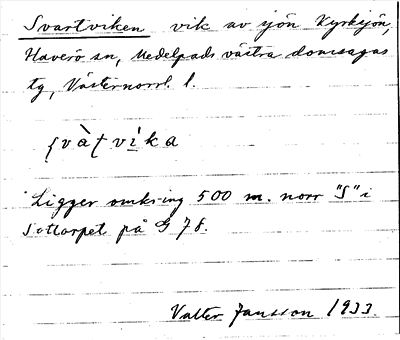 Svartviken vik av sjön Kyrksjön,
Haverö sn, Medelpads västra domsagas
tg, Västernorrl. l.
ʃvàtvika
Ligger omkring 500 m. norr "S" i
Sottorpet på G 78.
Valter Jansson 1933.